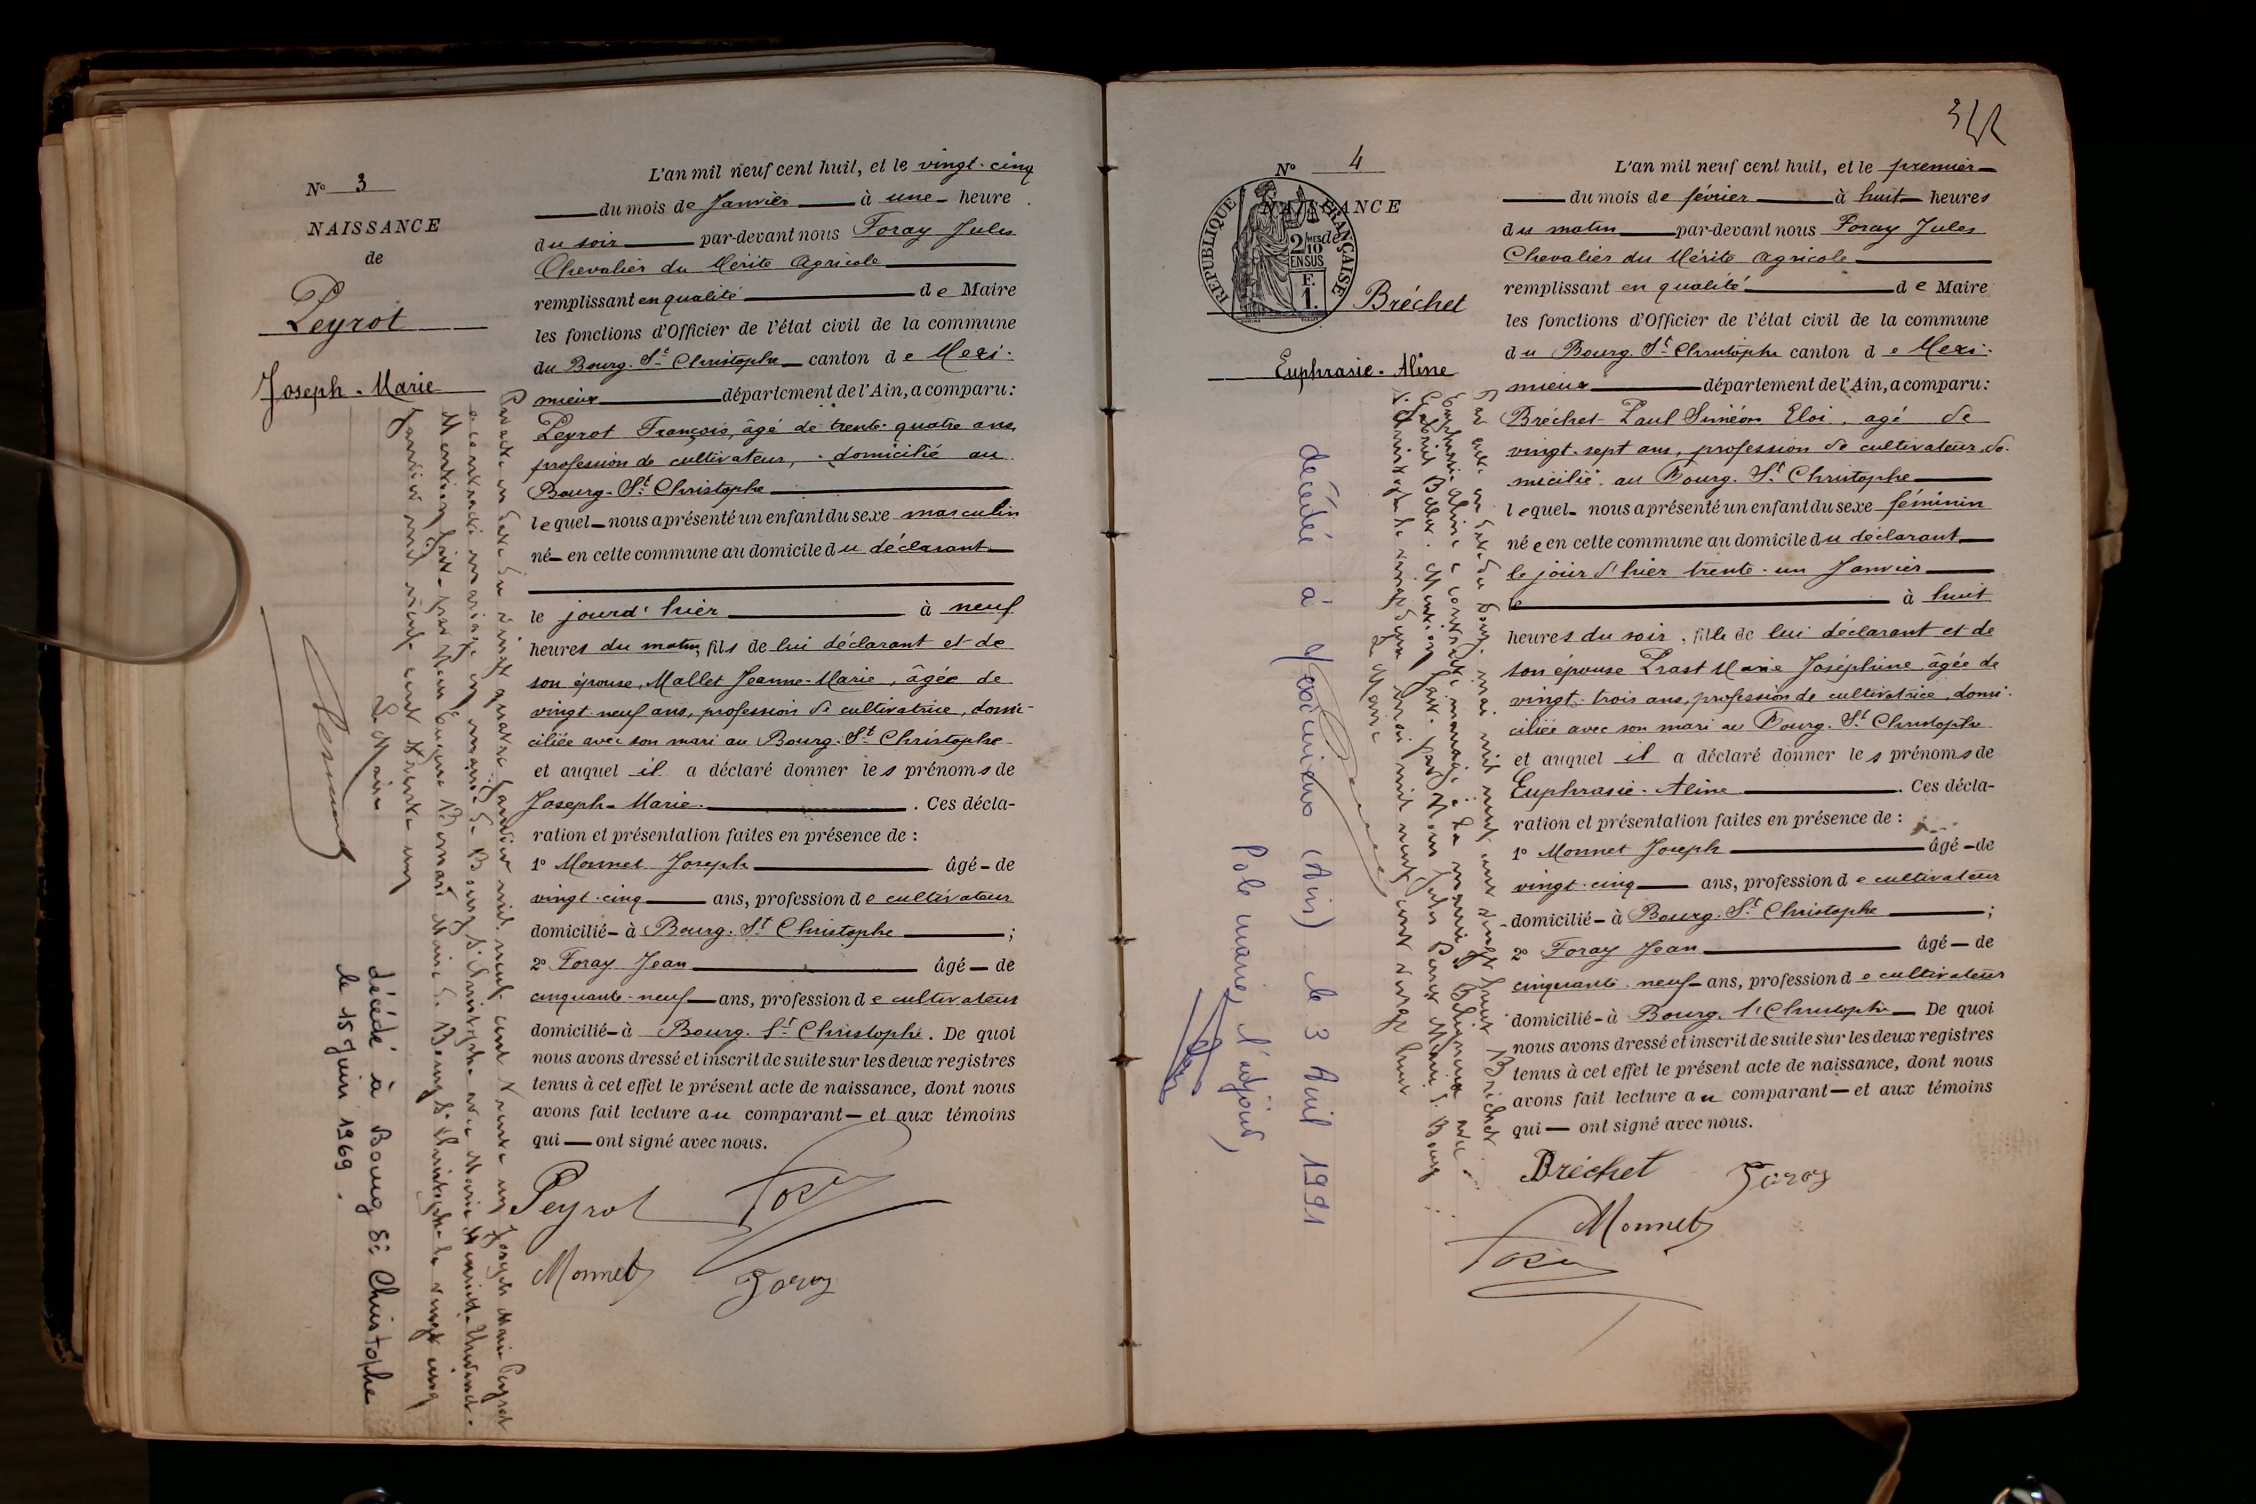 N° 3
NAISSANCE
de
Peyrot
Joseph-Marie
L'an mil neuf cent huit, et le vingt-cinq
du mois de Janvier à une heure
du soir par-devant nous Foray Jules
Chevalier du Mérite Agricole
remplissant en qualité de Maire
les fonctions d'Officier de l'état civil de la commune
du Bourg-St-Christophe canton de Mexi-
mieux département de l'Ain, a comparu :
Peyrot François, âgé de trente-quatre ans,
profession de cultivateur, domicilié au
Bourg-St-Christophe
lequel nous a présenté un enfant du sexe masculin
né en cette commune au domicile du déclarant
le jourd'hier à neuf
heures du matin, fils de lui déclarant et de
son épouse, Mallet Jeanne-Marie, âgée de
vingt-neuf ans, profession de cultivatrice, domi-
ciliée avec son mari au Bourg-St-Christophe
et auquel il a déclaré donner les prénoms de
Joseph-Marie. Ces décla-
ration et présentation faites en présence de :
1° Monnet Joseph âgé de
vingt-cinq ans, profession de cultivateur
domicilié à Bourg-St-Christophe ;
2° Foray Jean âgé de
cinquante-neuf ans, profession de cultivateur
domicilié à Bourg-St-Christophe. De quoi
nous avons dressé et inscrit de suite sur les deux registres
tenus à cet effet le présent acte de naissance, dont nous
avons fait lecture au comparant et aux témoins
qui ont signé avec nous.
Peyrot Foray
Monnet Foray
Par acte en date du vingt quatre Janvier mil neuf cent trente un Joseph Marie Peyrot
a contracté mariage en mairie de Bourg St Christophe avec Marie
Mention faite par Maire de Bourg St Christophe le vingt cinq
Janvier mil neuf cent trente un
Le Maire
décédé à Bourg St Christophe
le 15 Juin 1969.
342
N° 4
NAISSANCE
de
REPUBLIQUE FRANÇAISE
2/10MES
EN SUS
F.
1.
Bréchet
Euphrasie-Aline
L'an mil neuf cent huit, et le premier
du mois de février à huit heures
du matin par-devant nous Foray Jules
Chevalier du Mérite Agricole
remplissant en qualité de Maire
les fonctions d'Officier de l'état civil de la commune
du Bourg-St-Christophe canton de Mexi-
mieux département de l'Ain, a comparu :
Bréchet Paul Siméon Eloi, agé de
vingt-sept ans, profession de cultivateur, do-
micilié au Bourg-St-Christophe
lequel nous a présenté un enfant du sexe féminin
née en cette commune au domicile du déclarant
le jour d'hier trente-un Janvier
le à huit
heures du soir, fille de lui déclarant et de
son épouse Prast Marie Joséphine âgée de
vingt-trois ans, profession de cultivatrice, domi-
ciliée avec son mari au Bourg-St-Christophe
et auquel il a déclaré donner les prénoms de
Euphrasie-Aline. Ces décla-
ration et présentation faites en présence de :
1° Monnet Joseph âgé de
vingt-cinq ans, profession de cultivateur
domicilié à Bourg-St-Christophe ;
2° Foray Jean âgé de
cinquante-neuf ans, profession de cultivateur
domicilié à Bourg-St-Christophe De quoi
nous avons dressé et inscrit de suite sur les deux registres
tenus à cet effet le présent acte de naissance, dont nous
avons fait lecture au comparant et aux témoins
qui ont signé avec nous.
Bréchet Foray
Monnet
Foray
Par acte en date du mai mil neuf cent vingt huit Bréchet
Euphrasie Aline a contracté mariage à la mairie de avec
Mention faite par Nous Maire de Bourg
St Christophe le mai mil neuf cent vingt huit
Le Maire
décédée à (Ain) le 3 Avril 1991
P/le maire, l'adjoint,